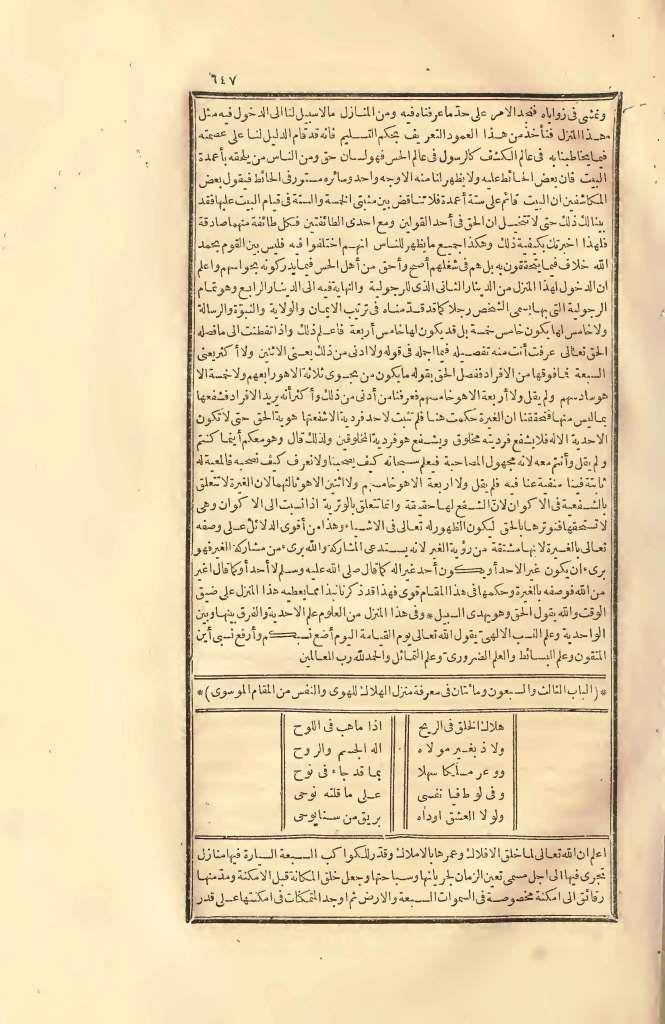 ٦٤٧
ونمشى فى زواياه فنجد الامر على حدّ ما عرفناه فيه ومن المنازل مالا سبيل لنا الى الدخول فيه مثل
هذا المنزل فنأخذ من هذا العمود التعريف بحكم التسليم فانه قد قام الدليل لنا على عصمته
فيما يخاطبنا به فى عالم الكشف كالرسول فى عالم الحس فهو لسان حق ومن الناس من يلحقه بأعمدة
البيت فان بعض الحائط عليه ولا يظهر لنا منه الا وجه واحد وسائره مستور فى الحائط فيقول بعض
المكاشفين ان البيت قائم على ستة أعمدة فلا تناقض بين مثبتى الخمسة والستة فى قيام البيت عليها فقد
بينا لك ذلك حتى لا تتخيل ان الحق فى أحد القولين ومع احدى الطائفتين فكل طائفة منهما صادقة
فلهذا اخبرتك بكيفية ذلك وهكذا جميع ما يظهر للناس انهم اختلفوا فيه فليس بين القوم بحمد
الله خلاف فيما يتحققون به بل هم فى شغلهم أصح وأحق من أهل الحس فيما يدركونه بحواسهم واعلم
ان الدخول لهذا المنزل من الدينار الثانى الذى للرجولية والنهاية فيه الى الدينار الرابع وهو تمام
الرجولية التى بها يسمى الشخص رجلا كما قد قدّمناه فى ترتيب الايمان والولاية والنبوّة والرسالة
ولا خامس لها يكون خامس خمسة بل قد يكون لها خامس أربعة فاعلم ذلك واذا تفطنت الى ما فصله
الحق تعالى عرفت أنت منه تفصيله فيما اجمله فى قوله ولا ادنى من ذلك يعنى الاثنين ولا أكثر يعنى
السبعة فما فوقها من الافراد فصل الحق بقوله ما يكون من نجوى ثلاثة الا هو رابعهم ولا خمسة الا
هو سادسهم ولم يقل ولا أربعة الا هو خامسهم فعرفنا من أدنى من ذلك وأكثر أنه يريد الافراد فشفعها
بما ليس منها فتحققنا ان الغيرة حكمت هنا فلم تثبت لاحد فردية الا شفعتها هوية الحق حتى لا تكون
الاحدية الا له فلا يشفع فرديته مخلوق ويشفع هو فردية المخلوقين ولذلك قال وهو معكم أينما كنتم
ولم يقل وأنتم معه لانه مجهول المصاحبة فيعلم سبحانه كيف يصحبنا ولا نعرف كيف نصحبه فالمعية له
ثابتة فينا منفية عنا فيه فلم يقل ولا اربعة الا هو خامسهم ولا اثنين الا هو ثالثهما لان الغيرة لا تتعلق
بالشفعية فى الاكوان لان الشفع لها حقيقة وانما تتعلق بالوترية اذا نسبت الى الاكوان وهى
لا تستحقها فتوترها بالحق ليكون الظهور له تعالى فى الاشياء وهذا من أقوى الدلائل على وصفه
تعالى بالغيرة لانها مشتقة من رؤية الغير لانه يستدعى المشاركة والله برىء من مشاركة الغير فهو
برىء ان يكون غير الاحد أو يكون أحد غير اله كما قال صلى الله عليه وسلم لا أحد أو كما قال اغير
من الله فوصفه بالغيرة وحكمها فى هذا المقام قوى فهذا قد ذكرنا نبذا مما يعطيه هذا المنزل على ضيق
الوقت والله يقول الحق وهو يهدى السبيل * وفى هذا المنزل من العلوم علم الاحدية والفرق بينها وبين
الواحدية وعلم النسب الالهى يقول الله تعالى يوم القيامة اليوم أضع نسبكم وأرفع نسبى أين
المتقون وعلم البسائط والعلم الضرورى وعلم التماثل والحمد لله رب العالمين
* (الباب الثالث والسبعون ومائتان فى معرفة منزل الهلاك للهوى والنفس من المقام الموسوى) *
هلاك الخلق فى الريح    اذا ماهب فى اللوح
ولاذ بغير مولاه    اله الجسم والروح
ووعر مسلكا سهلا    بما قد جاء فى نوح
وفى لوط فيا نفسى    على ما قلته نوحى
ولولا العشق اوداه    بريق من سنا يوحى
اعلم ان الله تعالى لما خلق الافلاك وعمرها بالاملاك وقدّر للكواكب السبعة السيارة فيها منازل
تجرى فيها الى اجل مسمى تعين الزمان لجريانها وسباحتها وجعل خلق المكانة قبل الامكنة ومدّ منها
رقائق الى امكنة مخصوصة فى السموات السبعة والارض ثم اوجد المتمكنات فى امكنتها على قدر